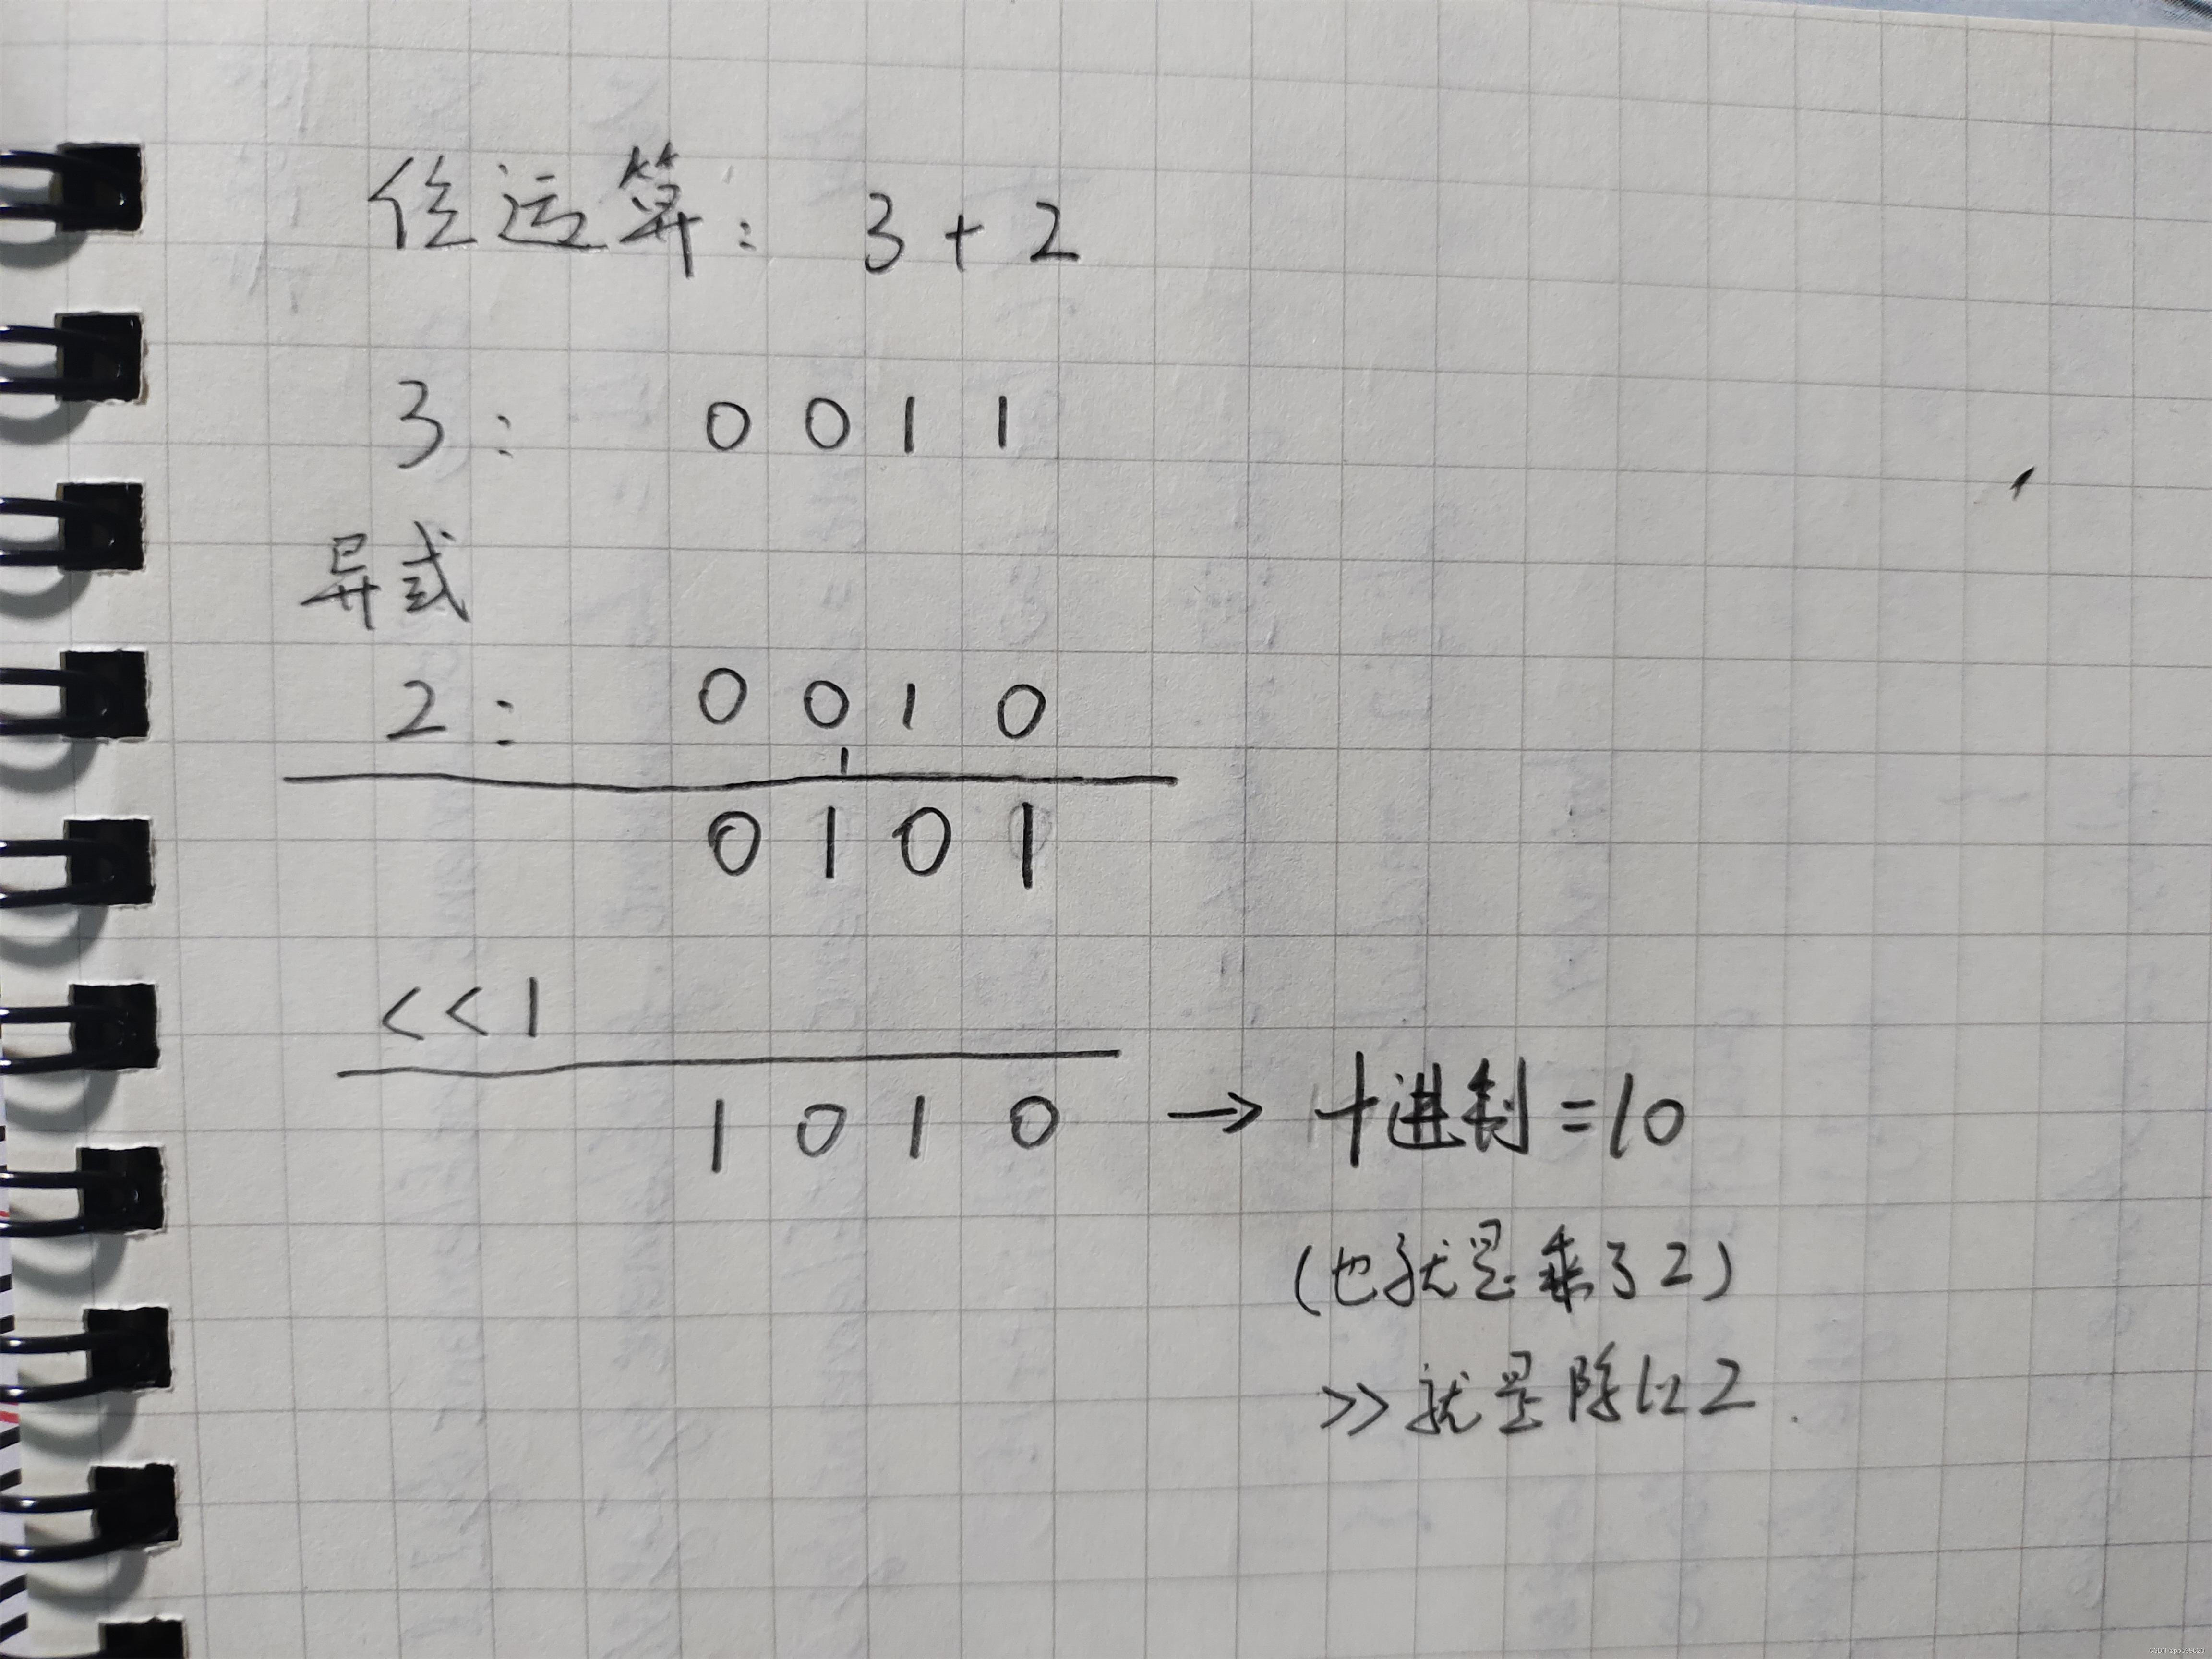 位运算: 3 + 2
3: 0 0 1 1
异或
2: 0 0 1 0
1
0 1 0 1
<<1
1 0 1 0 → 十进制=10
(也就是乘了2)
>>就是除以2.